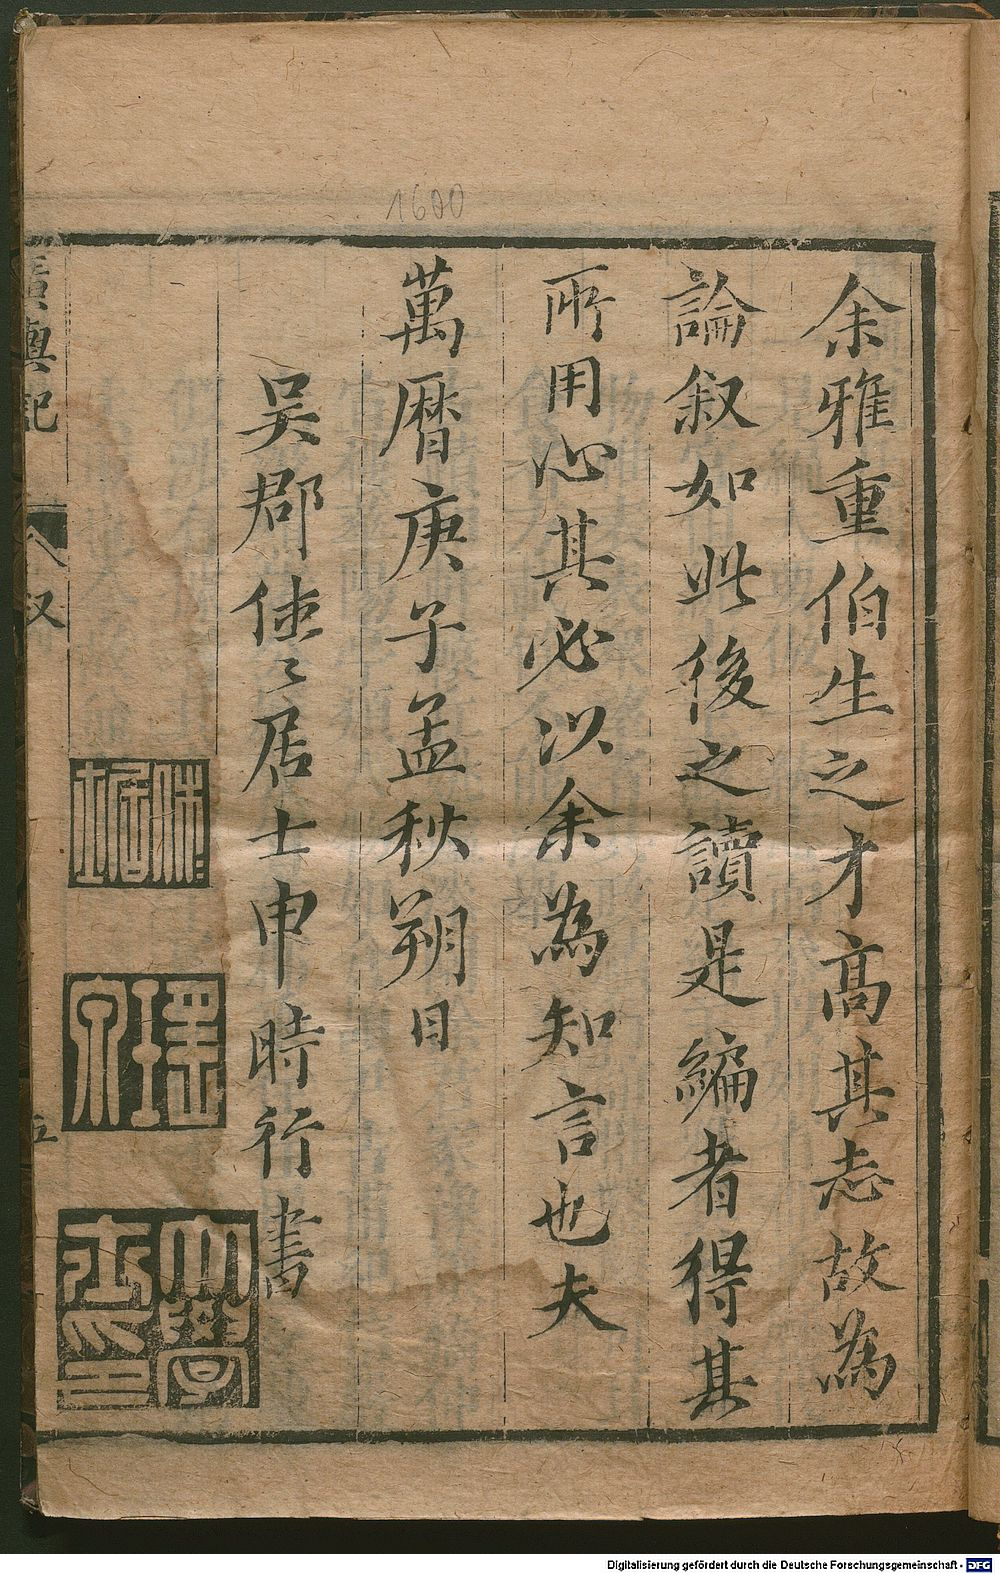 1600
余雅重伯生之才高其志故為
論叙如此後之讀是編者得其
所用心其必以余為知言也夫
萬曆庚子孟秋朔日
吳郡休〻居士申時行書
廣輿記
叙
五
Digitalisierung gefördert durch die Deutsche Forschungsgemeinschaft - DFG